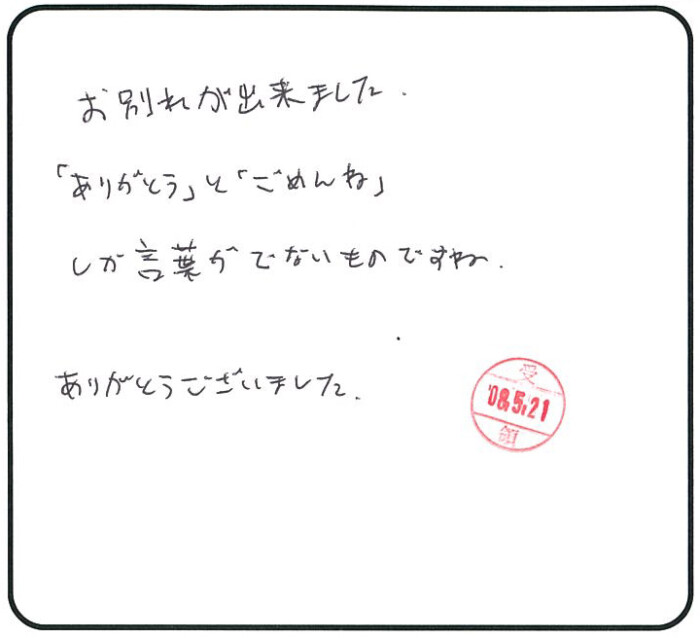 お別れが出来ました.
「ありがとう」と「ごめんね」
しか言葉がでないものですね.
ありがとうございました.
受
'08.5.21
領